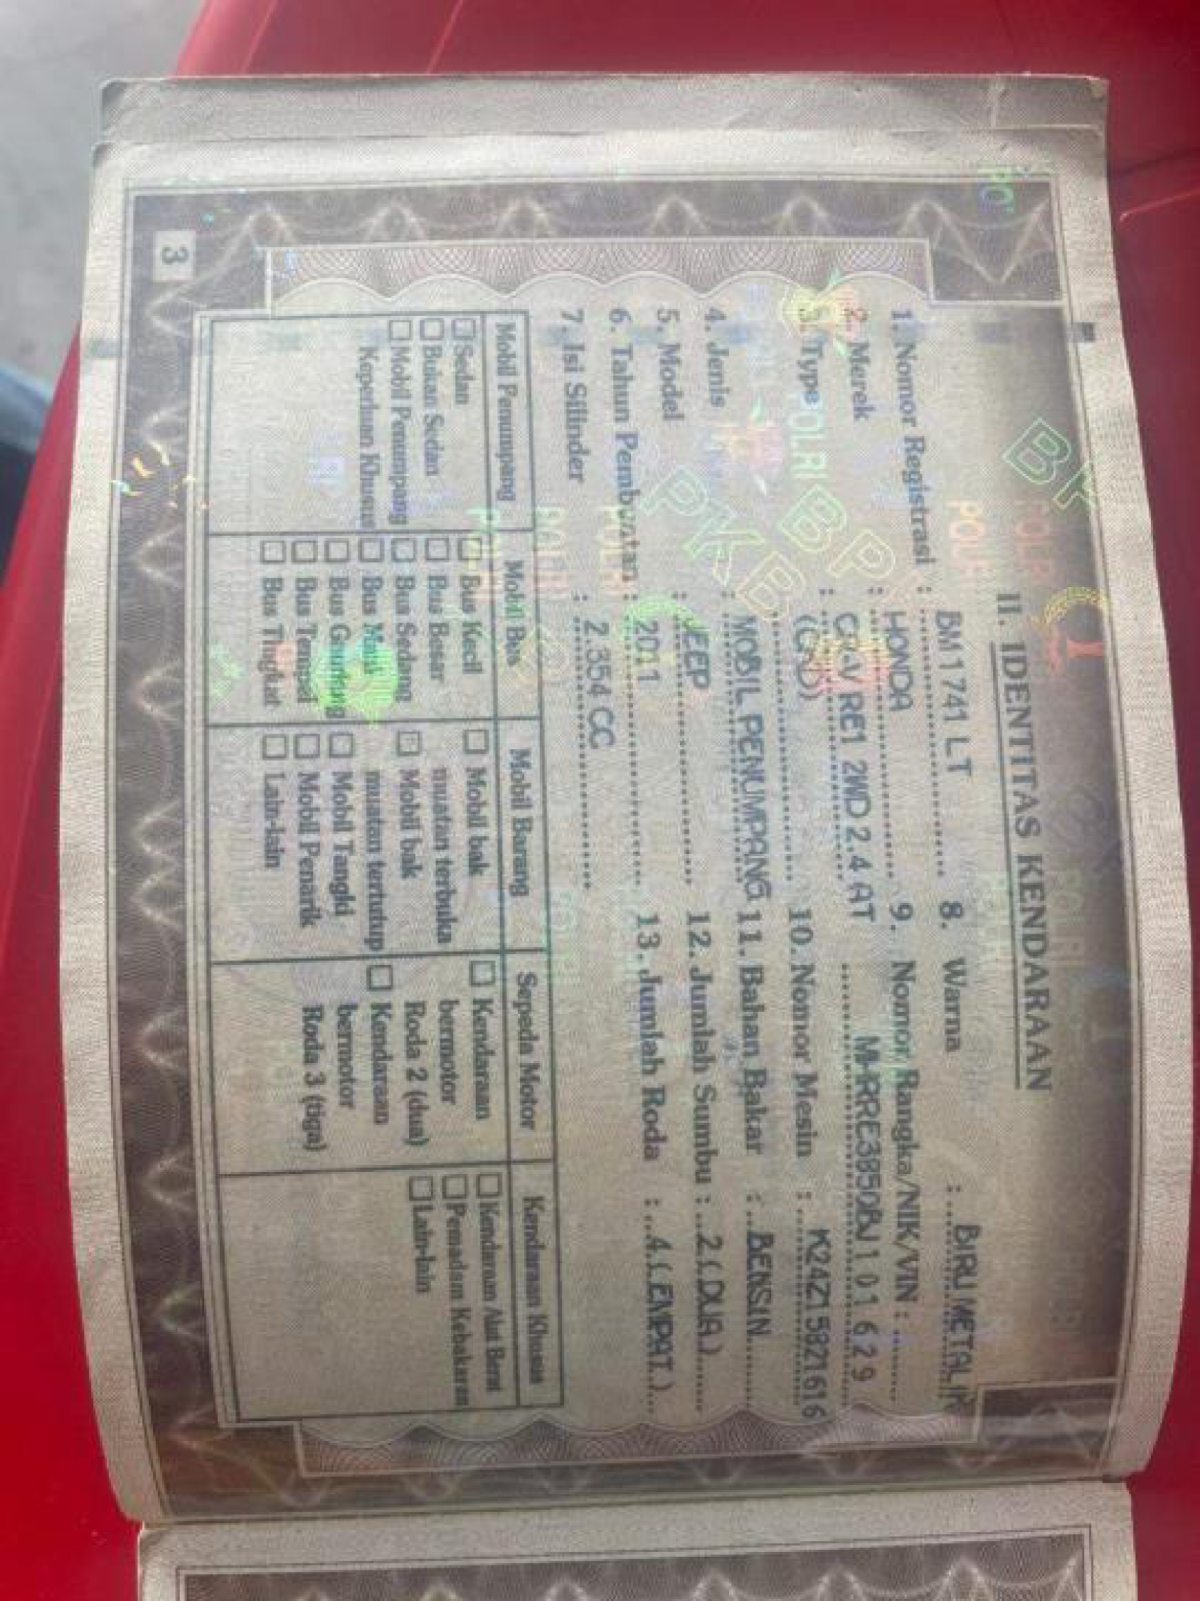 II. IDENTITAS KENDARAAN
1. Nomor Registrasi : BM 1741 LT
2. Merek : HONDA
3. Type : CRV RE1 2WD 2.4 AT
(CKD)
4. Jenis : MOBIL PENUMPANG
5. Model : JEEP
6. Tahun Pembuatan : 2011
7. Isi Silinder : 2.354 CC
8. Warna : BIRU METALIK
9. Nomor Rangka/NIK/VIN :
MHRRE3850BJ101629
10. Nomor Mesin : K24Z15821616
11. Bahan Bakar : BENSIN
12. Jumlah Sumbu : 2 (DUA)
13. Jumlah Roda : 4 (EMPAT)
Mobil Penumpang
Sedan
Bukan Sedan
Mobil Penumpang
Keperluan Khusus
Mobil Bus
Bus Kecil
Bus Besar
Bus Sedang
Bus Mikro
Bus Gandeng
Bus Tempel
Bus Tingkat
Mobil Barang
Mobil bak
muatan terbuka
Mobil bak
muatan tertutup
Mobil Tangki
Mobil Penarik
Lain-lain
Sepeda Motor
Kendaraan
bermotor
Roda 2 (dua)
Kendaraan
bermotor
Roda 3 (tiga)
Kendaraan Khusus
Kendaraan Alat Berat
Pemadam Kebakaran
Lain-lain
3